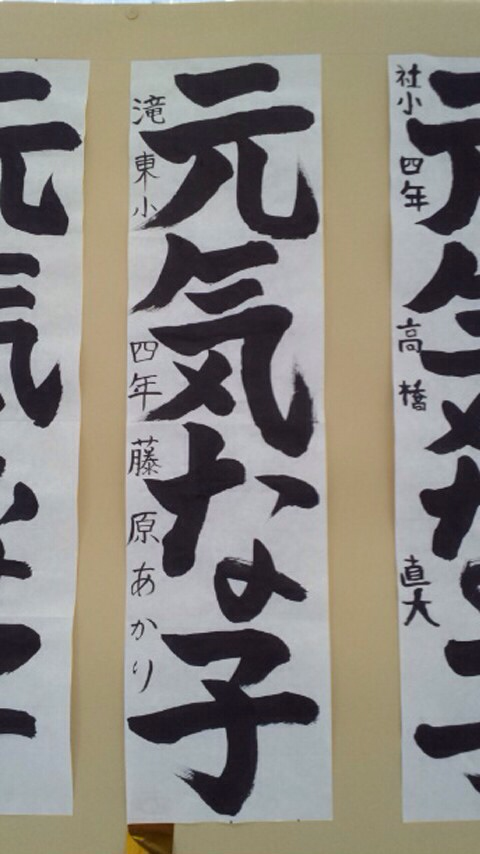 元気な子
社小 四年 高橋 直大
元気な子
滝東小 四年 藤原あかり
元気な子